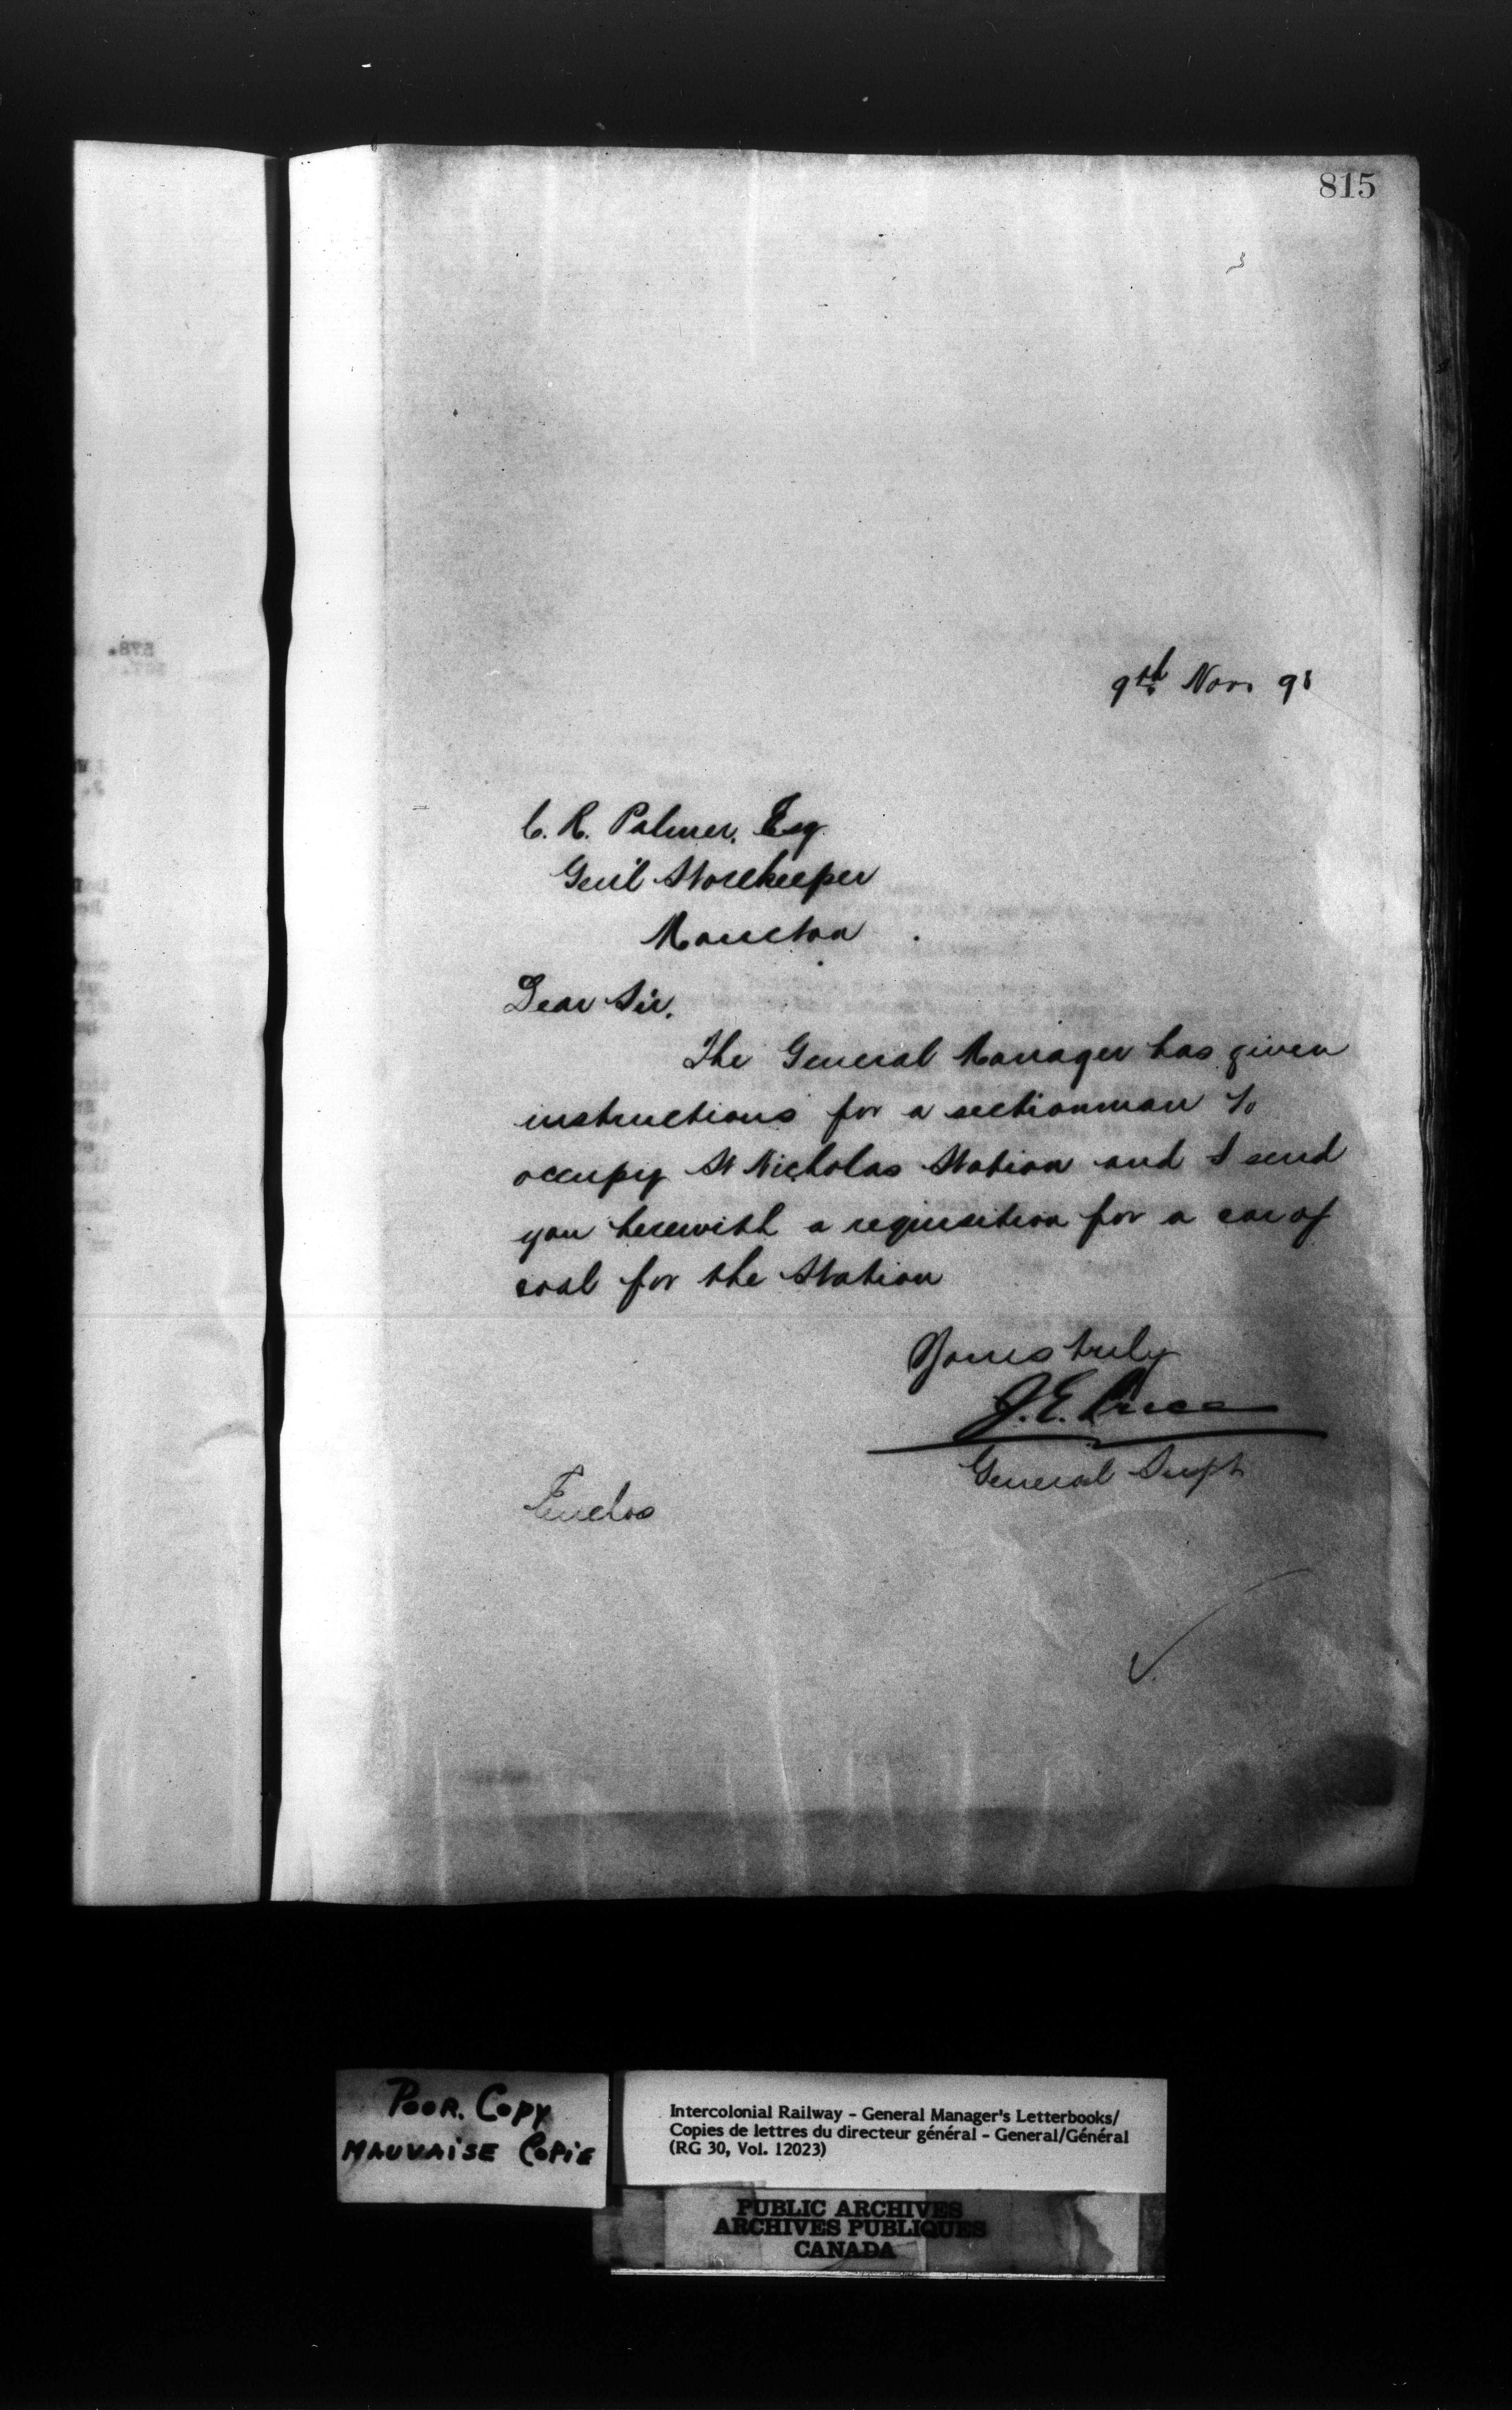 815
9th Nov. 98
C. R. Palmer, Esq
Gen'l Storekeeper
Moncton
Dear Sir,
The General Manager has given
instructions for a sectionman to
occupy St Nicholas Station and I send
you herewith a requisition for a car of
coal for the Station
Yours truly
J. E. Price
General Supt
Enclos
POOR. COPY
MAUVAISE COPIE
Intercolonial Railway - General Manager's Letterbooks/
Copies de lettres du directeur général - General/Général
(RG 30, Vol. 12023)
PUBLIC ARCHIVES
ARCHIVES PUBLIQUES
CANADA